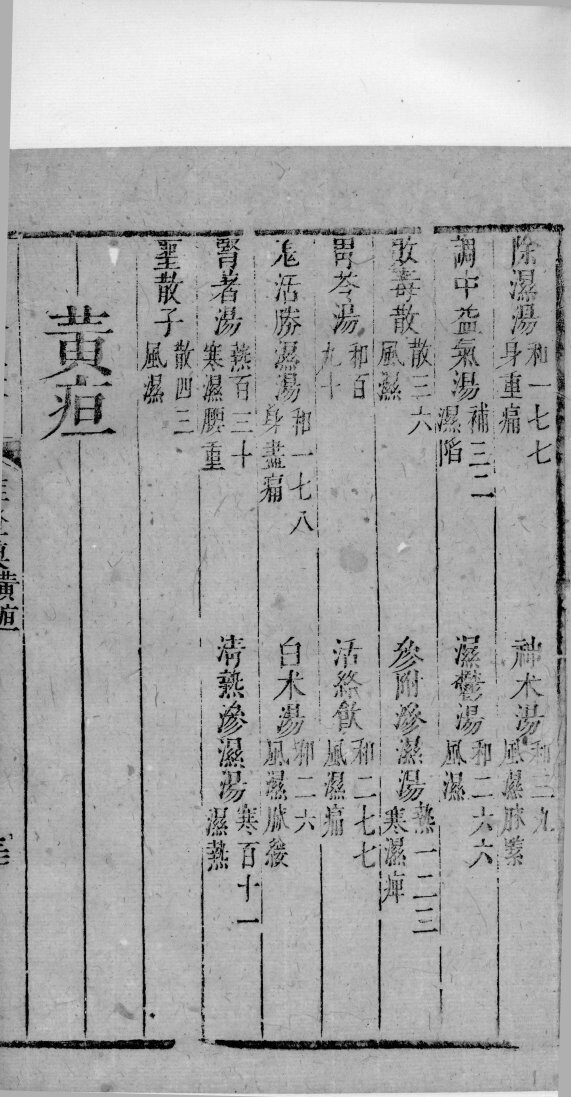 除濕湯 和一七七 身重痛
神朮湯 和三九 風濕脉緊
調中益氣湯 補三二 濕陷
濕鬱湯 和二六六 風濕
敗毒散 散三六 風濕
參附滲濕湯 熱一二三 寒濕痺
胃苓湯 和百九十
活絡飲 和二七七 風濕痛
羌活勝濕湯 和一七八 身盡痛
白朮湯 和二六 風濕脉緩
腎著湯 熱百三十 寒濕腰重
清熱滲濕湯 寒百十一 濕熱
聖散子 散四三 風濕
黃疸
黃疸